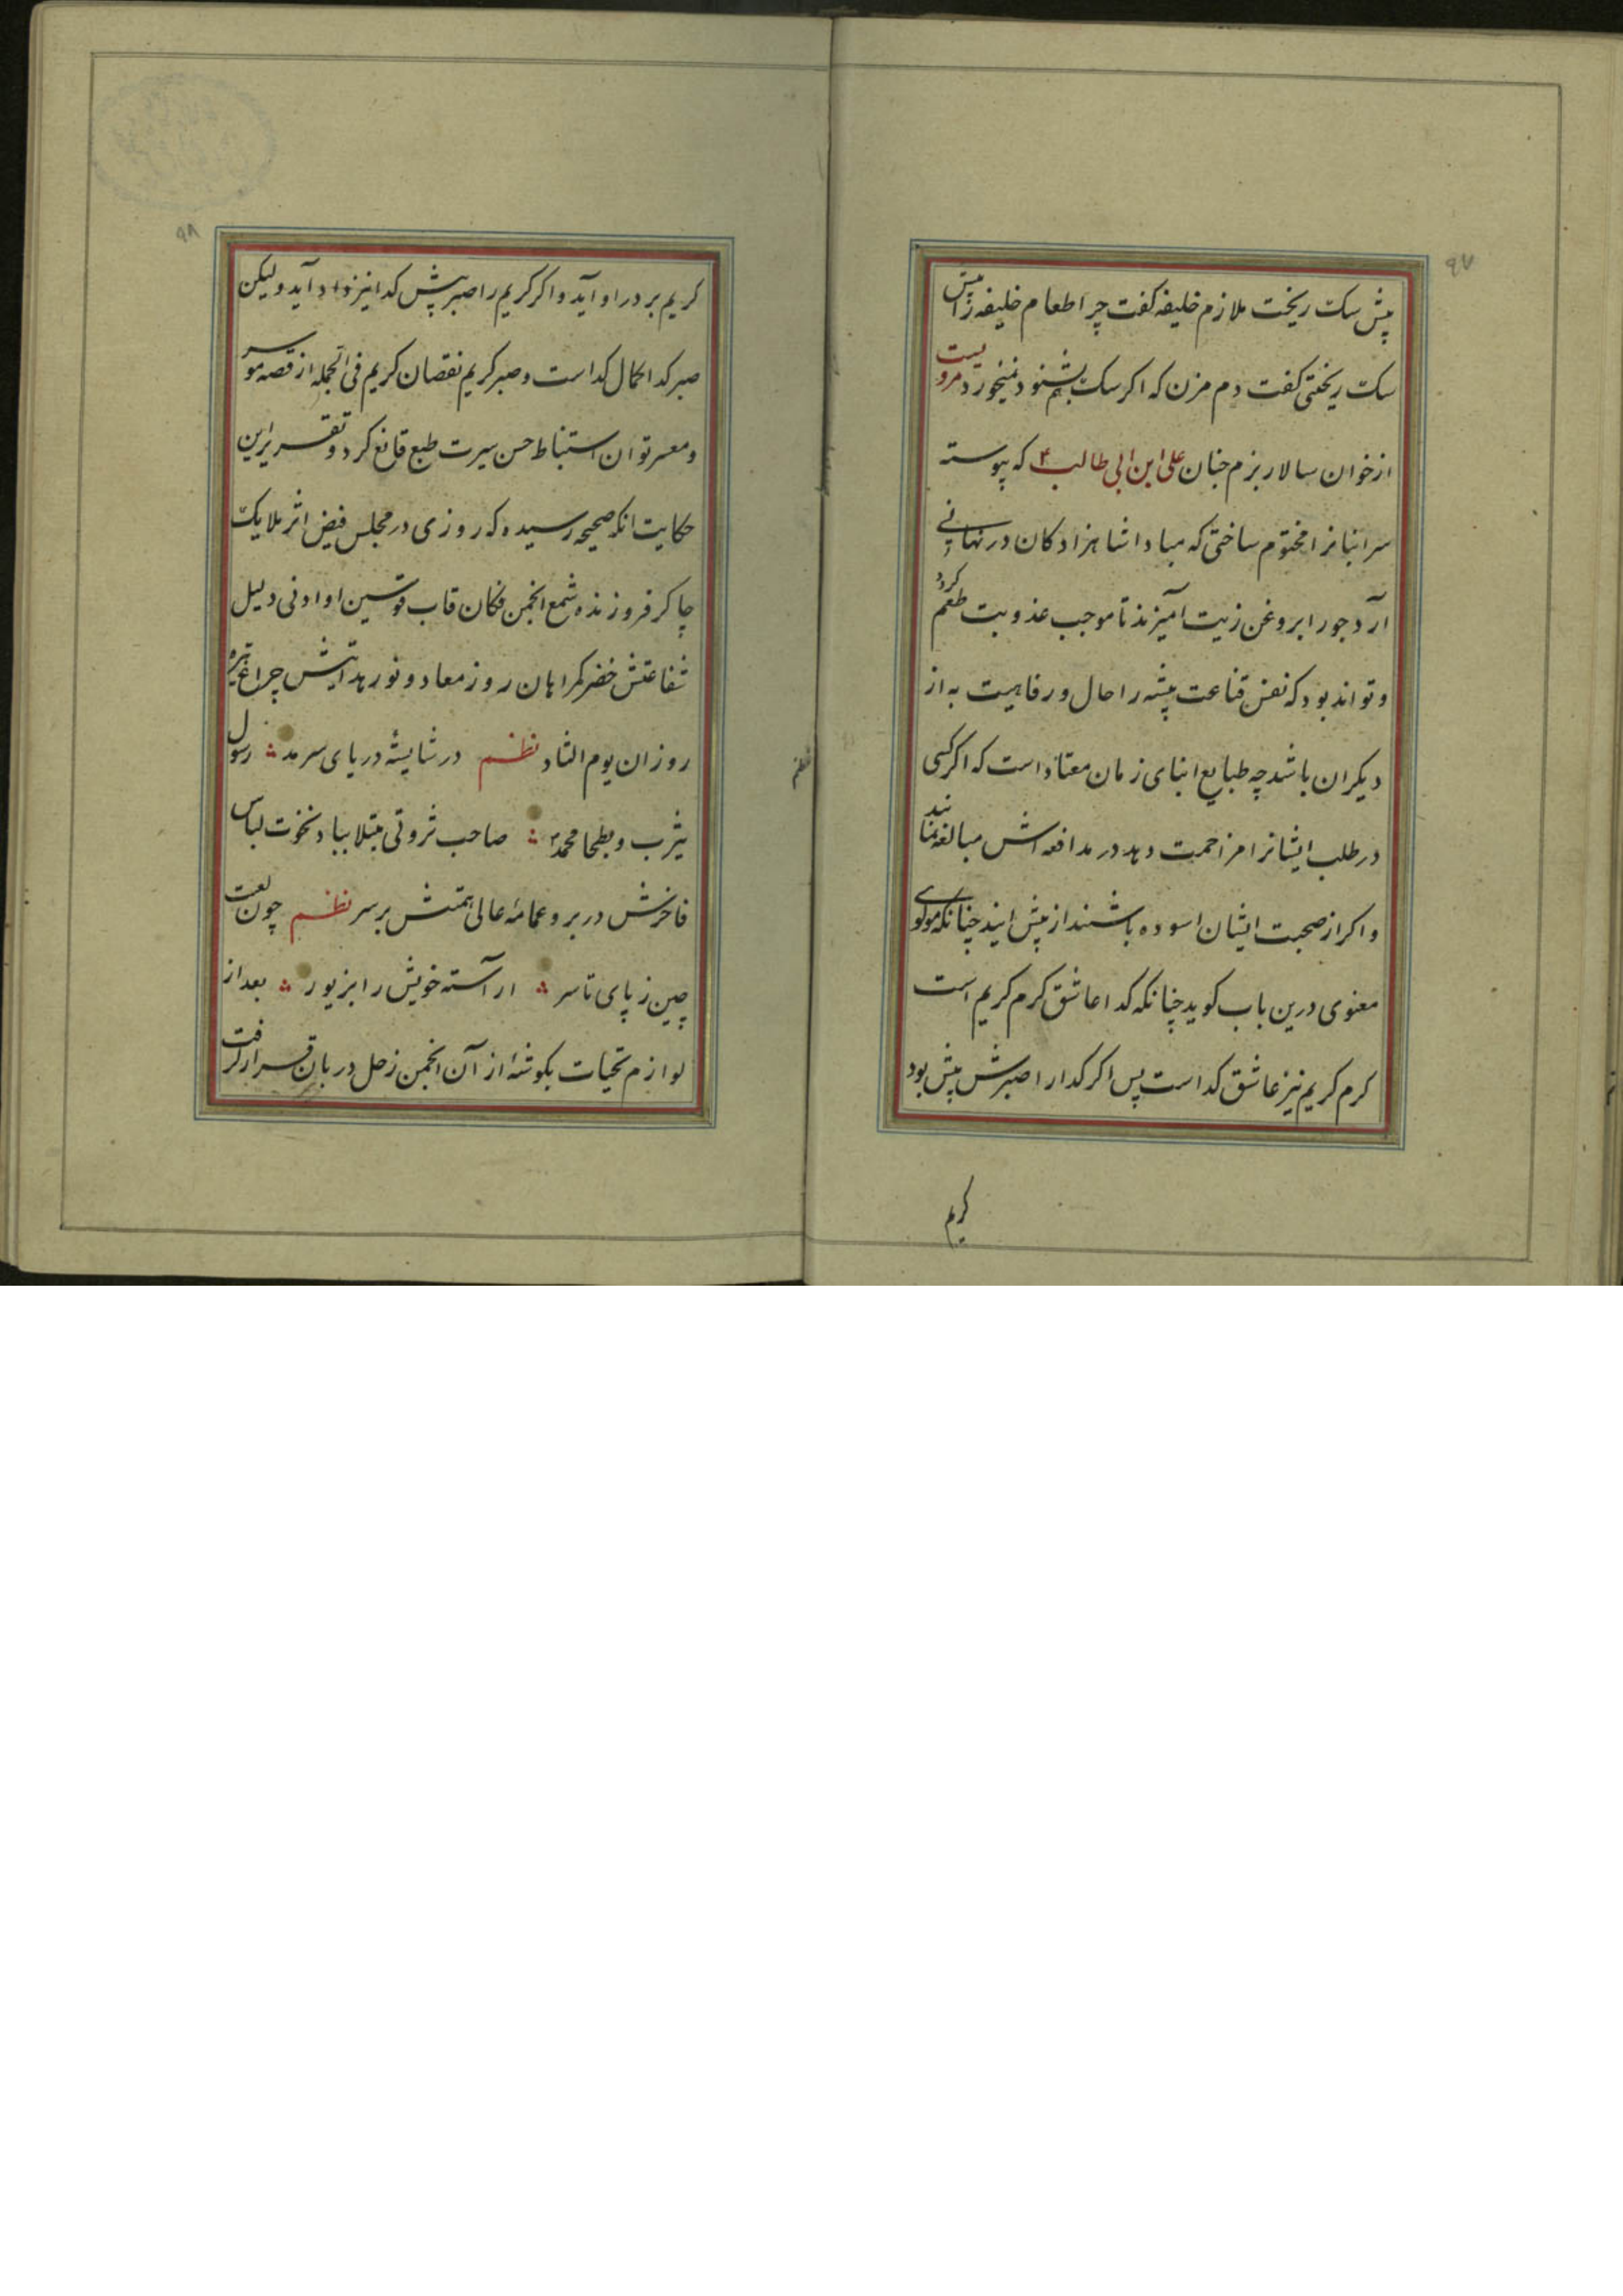 ۹۷
پیش سک ریخت ملازم خلیفه کفت چرا طعام خلیفه را پیش
سک ریختی کفت دم مزن که اکر سک بشنود نمیخورد مرویست
از خوان سالار بزم جنان علی ابن ابی طالب ۴ که پیوسته
سر انبانرا مختوم ساختی که مبادا شاهزادکان در نهانی
آرد جو را بروغن زیت آمیزند تا موجب عذوبت طعم کردد
و تواند بود که نفس قناعت پیشه را حال و رفاهیت به از
دیکران باشد چه طبایع ابنای زمان معتاد است که اکر کسی
در طلب ایشانرا مزاحمت دهد در مدافعه اش مبالغه نمایند
و اکر از صحبت ایشان اسوده باشند از پیش ایند چنانکه مولوی
معنوی درین باب کوید چنانکه کدا عاشق کرم کریم است
کرم کریم نیز عاشق کداست پس اکر کدا را صبرش پیش بود
کریم
۹۸
کریم بر در او آید و اکر کریم را صبر پیش کدا نیز واد آید و لیکن
صبر کدا کمال کداست و صبر کریم نقصان کریم فی الجمله از قصه موسر
و معسر توان استنباط حسن سیرت طبع قانع کرد و تقریر این
حکایت انکه صحیحه رسیده که روزی در مجلس فیض اثر ملایک
چاکر فروزنده شمع انجمن فکان قاب قوسین او ادنی دلیل
شفاعتش خضر کمراهان روز معاد و نور هدایتش چراغ تیره
روزان یوم التناد نظم در شایسته دریای سرمد رسول
یثرب و بطحا محمد صاحب ثروتی مبتلا بباد نخوت لباس
فاخرش در بر و عمامه عالی همتش بر سر نظم چون لعبت
چین ز پای تا سر اراسته خویش را بزیور بعد از
لوازم تحیات بکوشه از آن انجمن زحل دربان قرار کرفت